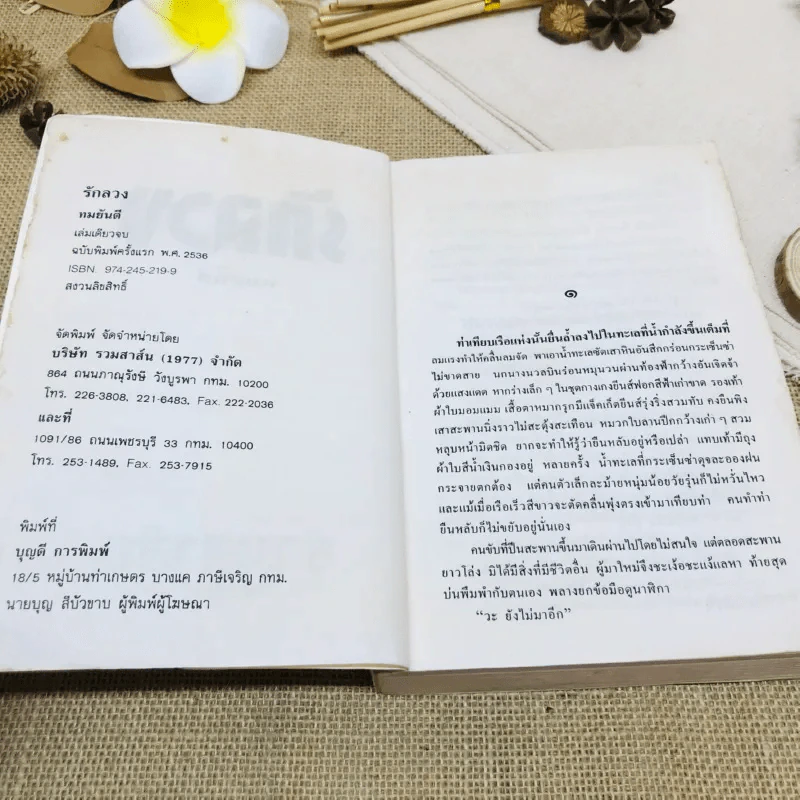 รักลวง
ทมยันตี
เล่มเดียวจบ
ฉบับพิมพ์ครั้งแรก พ.ศ. 2536
ISBN. 974-245-219-9
สงวนลิขสิทธิ์
จัดพิมพ์ จัดจำหน่ายโดย
บริษัท รวมสาส์น (1977) จำกัด
864 ถนนภาณุรังษี วังบูรพา กทม. 10200
โทร. 226-3808, 221-6483, Fax. 222-2036
และที่
1091/86 ถนนเพชรบุรี 33 กทม. 10400
โทร. 253-1489, Fax. 253-7915
พิมพ์ที่
บุญดี การพิมพ์
18/5 หมู่บ้านท่าเกษตร บางแค ภาษีเจริญ กทม.
นายบุญ สีบัวขาบ ผู้พิมพ์ผู้โฆษณา
๑
ท่าเทียบเรือแห่งนั้นยื่นล้ำลงไปในทะเลที่น้ำกำลังขึ้นเต็มที่
ลมแรงทำให้คลื่นลมจัด พาเอาน้ำทะเลซัดเสาหินอันสึกกร่อนกระเซ็นซ่า
ไม่ขาดสาย นกนางนวลบินร่อนหมุนวนผ่านท้องฟ้ากว้างอันเจิดจ้า
ด้วยแสงแดด หากร่างเล็ก ๆ ในชุดกางเกงยีนส์ฟอกสีฟ้าเก่าขาด รองเท้า
ผ้าใบมอมแมม เสื้อตาหมากรุกมีแจ็คเก็ตยีนส์รุ่งริ่งสวมทับ คงยืนพิง
เสาสะพานนิ่งราวไม่สะดุ้งสะเทือน หมวกใบลานปีกกว้างเก่า ๆ สวม
หลุบหน้ามิดชิด ยากจะทำให้รู้ว่ายืนหลับอยู่หรือเปล่า แทบเท้ามีถุง
ผ้าใบสีน้ำเงินกองอยู่ หลายครั้ง น้ำทะเลที่กระเซ็นซ่าดุจละอองฝน
กระจายตกต้อง แต่คนตัวเล็กละม้ายหนุ่มน้อยวัยรุ่นก็ไม่หวั่นไหว
และแม้เมื่อเรือเร็วสีขาวจะตัดคลื่นพุ่งตรงเข้ามาเทียบท่า คนทำท่า
ยืนหลับก็ไม่ขยับอยู่นั่นเอง
คนขับที่ปีนสะพานขึ้นมาเดินผ่านไปโดยไม่สนใจ แต่ตลอดสะพาน
ยาวโล่ง มิได้มีสิ่งที่มีชีวิตอื่น ผู้มาใหม่จึงชะเง้อชะแง้แลหา ท้ายสุด
บ่นพึมพำกับตนเอง พลางยกข้อมือดูนาฬิกา
“วะ ยังไม่มาอีก”